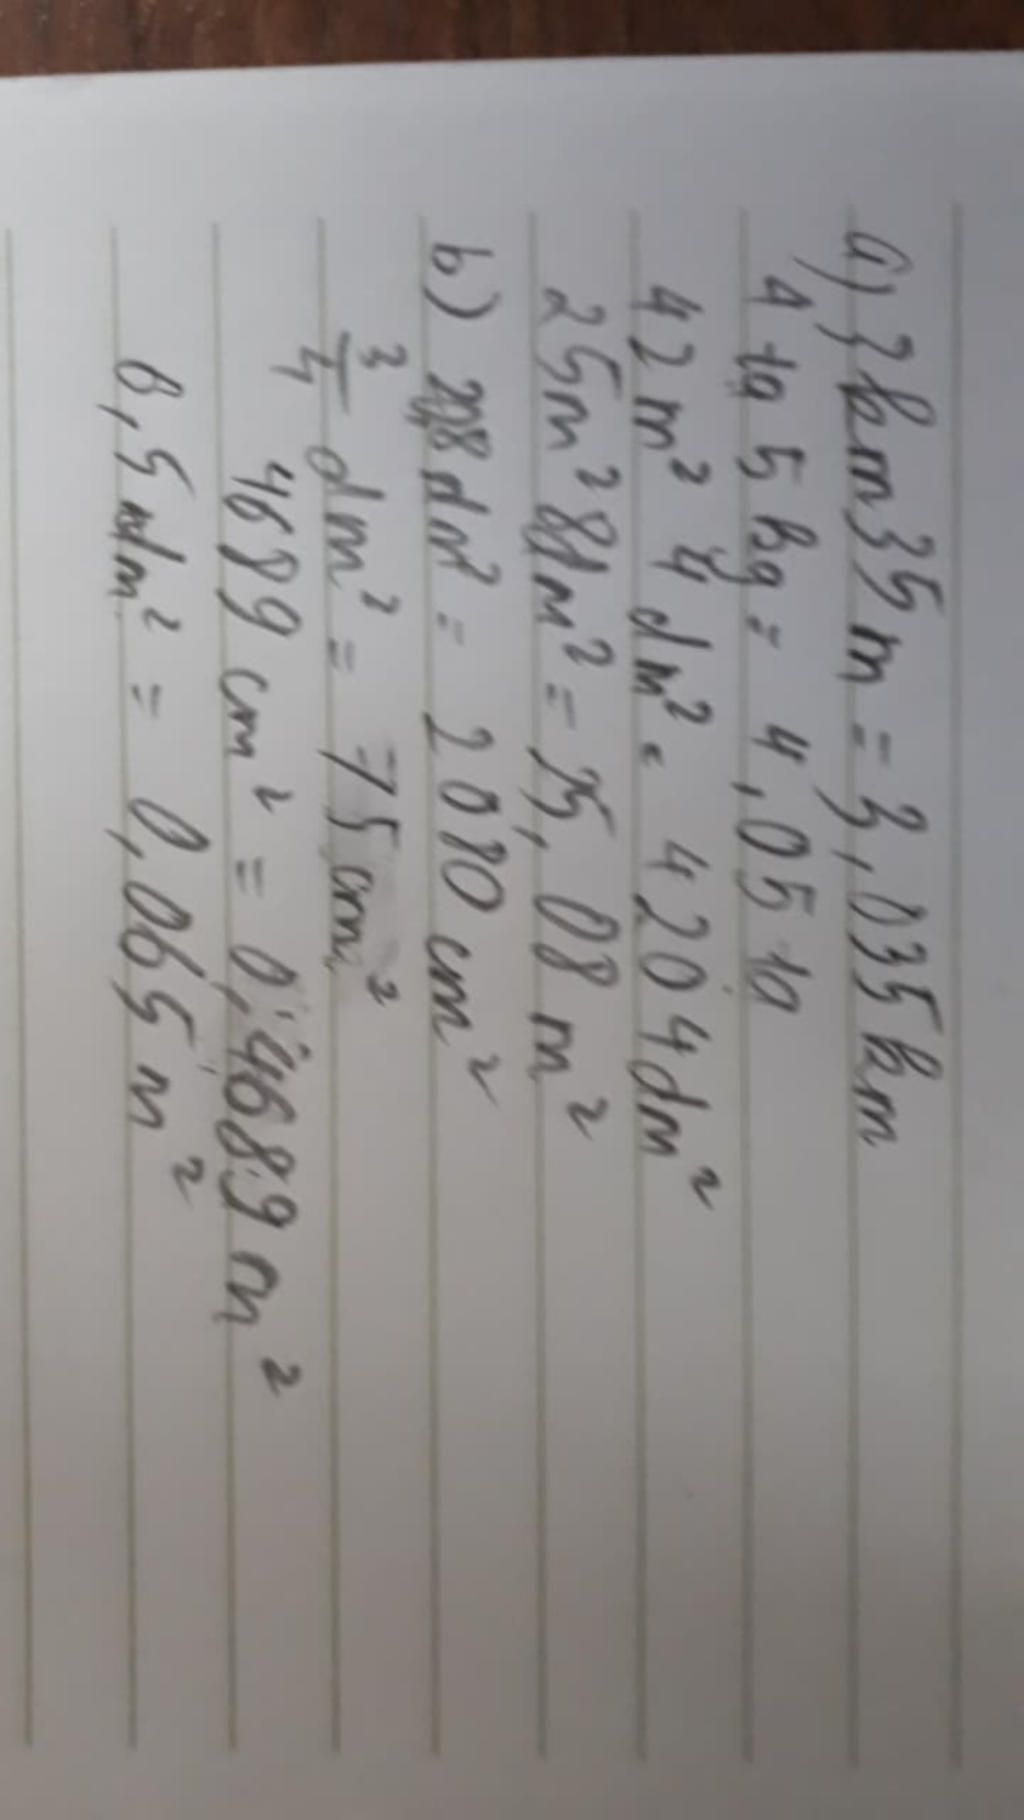 a) 3km35m = 3,035km
4 tạ 5 kg = 4,05 tạ
42 m² 4 dm² = 4204dm²
25m² 8dm² = 25,08 m²
b) 20,8 dm² = 2080 cm²
3/4 dm² = 75 cm²
4689 cm² = 0,4689 m²
6,5 dm² = 0,065 m²